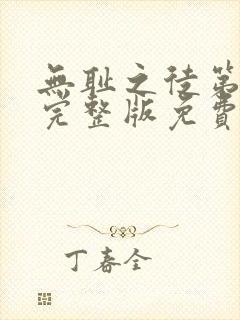 無耻之徒第
完整版免費
丁春全